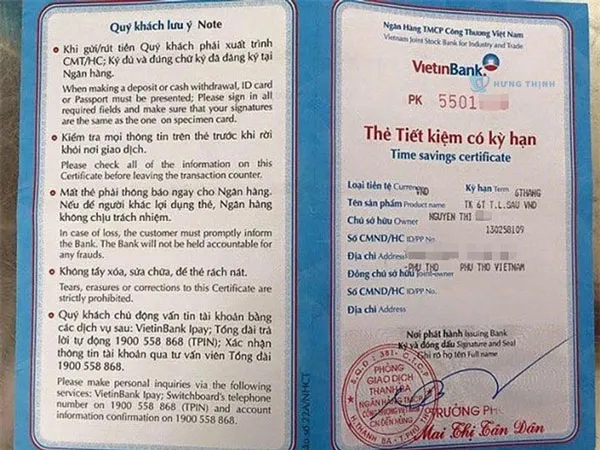 Quý khách lưu ý Note
Khi gửi/rút tiền Quý khách phải xuất trình
CMT/HC; Ký đủ và đúng chữ ký đã đăng ký tại
Ngân hàng.
When making a deposit or cash withdrawal, ID card
or Passport must be presented; Please sign in all
required fields and make sure that your signatures
are the same as the one on specimen card.
Kiểm tra mọi thông tin trên thẻ trước khi rời
khỏi nơi giao dịch.
Please check all of the information on this
Certificate before leaving the transaction counter.
Mất thẻ phải thông báo ngay cho Ngân hàng.
Nếu để người khác lợi dụng thẻ, Ngân hàng
không chịu trách nhiệm.
In case of loss, the customer must promptly inform
the Bank. The Bank will not be held accountable for
any frauds.
Không tẩy xóa, sửa chữa, để thẻ rách nát.
Tears, erasures or corrections to this Certificate are
strictly prohibited.
Quý khách chủ động vấn tin tài khoản bằng
các dịch vụ sau: VietinBank Ipay; Tổng đài trả
lời tự động 1900 558 868 (TPIN); Xác nhận
thông tin tài khoản qua tư vấn viên Tổng đài
1900 558 868.
Please make personal inquiries via the following
services: VietinBank Ipay; Switchboard's telephone
number on 1900 558 868 (TPIN) and account
information confirmation on 1900 558 868.
22A/NHCT
Ngân Hàng TMCP Công Thương Việt Nam
Vietnam Joint Stock Bank for Industry and Trade
VietinBank
HƯNG THỊNH
PK 5501
Thẻ Tiết kiệm có kỳ hạn
Time savings certificate
Loại tiền tệ Currency VND Kỳ hạn Term 6THANG
Tên sản phẩm Product name TK 6T T.L.SAU VND
Chủ sở hữu Owner NGUYEN THI
Số CMND/HC ID/PP No 130258109
Địa chỉ Address
PHU THO PHU THO VIETNAM
Đồng chủ sở hữu Joint-owner
Số CMND/HC ID/PP No.
Địa chỉ Address
Nơi phát hành Issuing Bank
Ký và đóng dấu Signature and Seal
Ghi rõ họ tên Full name
PHÒNG
GIAO DỊCH
THANH BA
NGÂN HÀNG TMCP
CÔNG THƯƠNG VIỆT
CN ĐỀN HÙNG
TRƯỞNG PH
Mai Thị Tân Dân